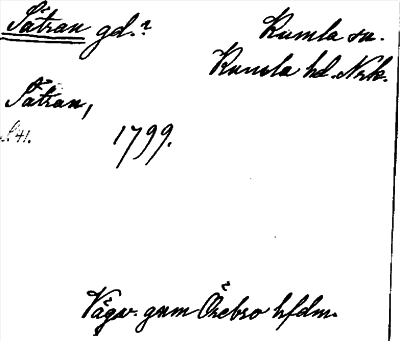 Såtran gd.?
Kumla sn.
Kumla hd. Nrk.
Såtran,
S. 41.
1799.
Vägv. gnm Örebro hfdm.